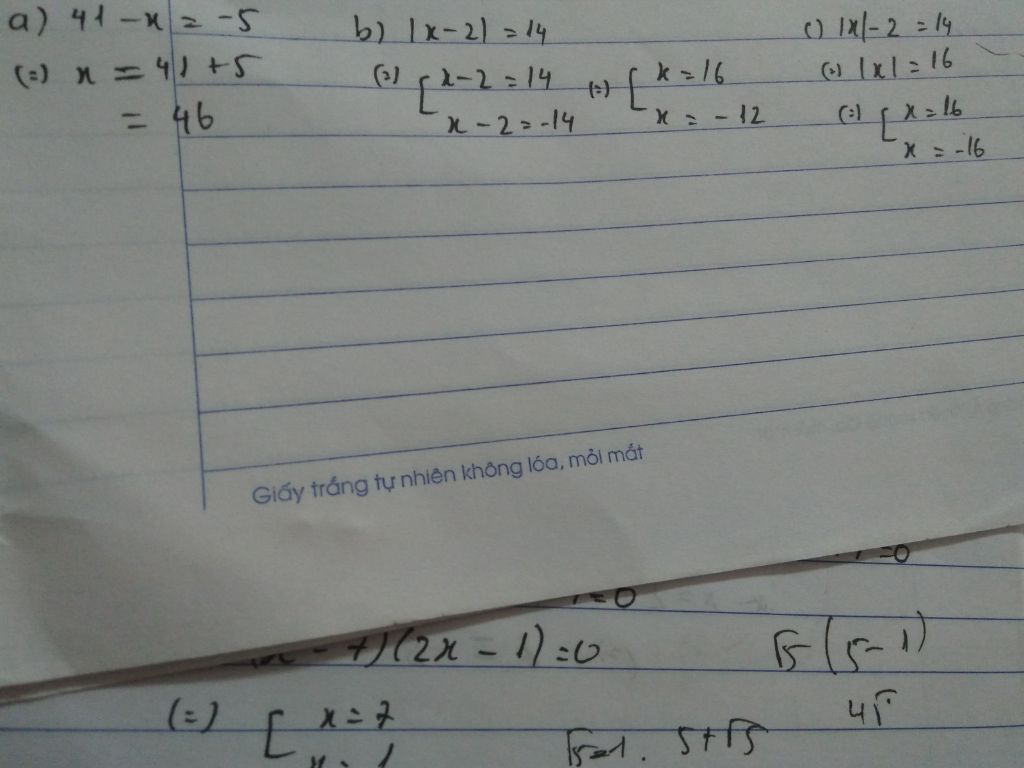 a) 41 - x = -5
(=) x = 41 + 5
= 46
b) |x - 2| = 14
(=) [ x - 2 = 14 (=) [ x = 16
x - 2 = -14 x = -12
c) |x| - 2 = 14
(=) |x| = 16
(=) [ x = 16
x = -16
Giấy trắng tự nhiên không lóa, mỏi mắt
= 0
= 0
- 7)(2x - 1) = 0
√5 (5 - 1)
(=) [ x = 7
4√
5 + √5